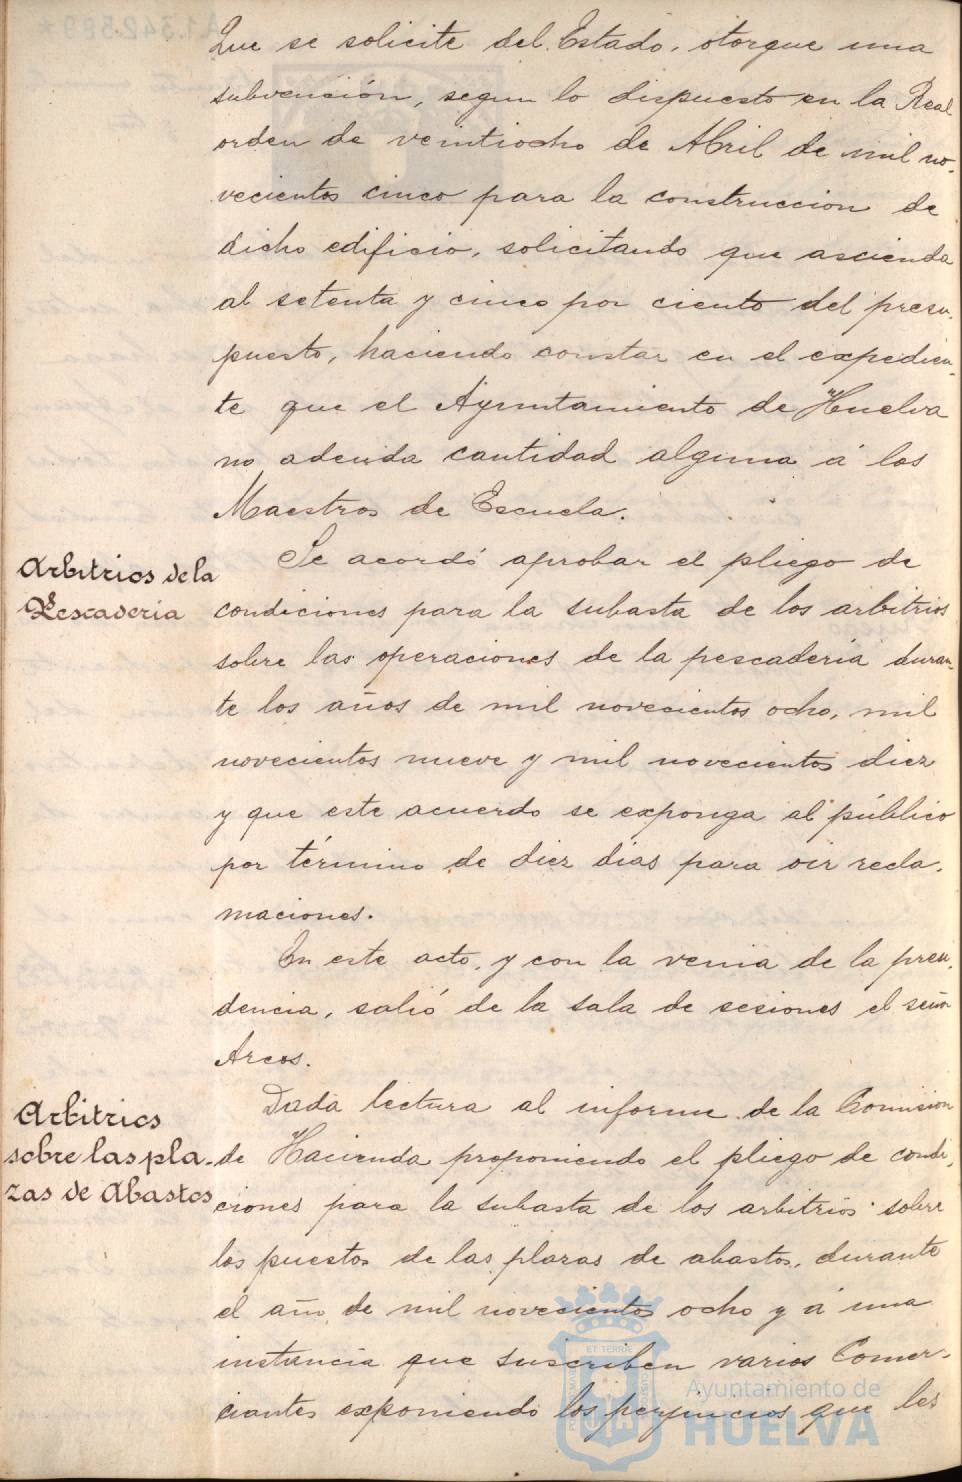 Que se solicite del Estado, otorgue una
subvención, segun lo dispuesto en la Real
orden de veintiocho de Abril de mil no-
vecientos cinco para la construccion de
dicho edificio, solicitando que ascienda
al setenta y cinco por ciento del presu-
puesto, haciendo constar en el expedien-
te que el Ayuntamiento de Huelva
no adeuda cantidad alguna á los
Maestros de Escuela.
Arbitrios de la
Pescaderia
Se acordó aprobar el pliego de
condiciones para la subasta de los arbitrios
sobre las operaciones de la pescadería duran-
te los años de mil novecientos ocho, mil
novecientos nueve y mil novecientos diez
y que este acuerdo se exponga al público
por término de diez dias para oir recla-
maciones.
En este acto, y con la venia de la presi-
dencia, salió de la sala de sesiones el señor
Arcos.
Arbitrios
sobre las pla-
zas de Abastos
Dada lectura al informe de la Comision
de Hacienda proponiendo el pliego de condi-
ciones para la subasta de los arbitrios sobre
los puestos de las plazas de abastos, durante
el año de mil novecientos ocho y á una
instancia que suscriben varios Comer-
ciantes exponiendo los perjuicios que les
Ayuntamiento de
HUELVA